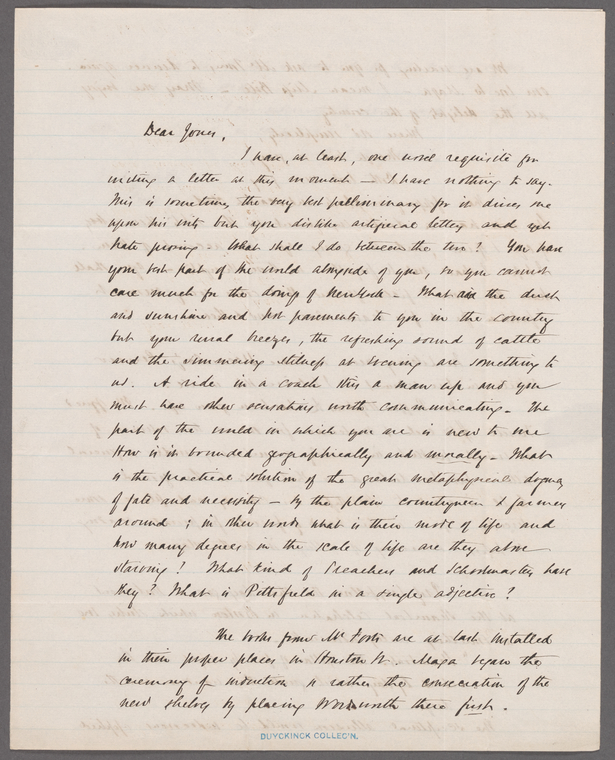 Dear Jones,
I have, at least, one novel requisite for
writing a letter at this moment — I have nothing to say.
This is sometimes the very best preliminary for it drives one
upon his wits but you dislike artificial letters and yet
hate prosing. What shall I do between the two? You have
your best part of the world alongside of you, so you cannot
care much for the doings of New York. What are the dust
and sunshine and hot pavements to you in the country
but your rural breezes, the refreshing sound of cattle
and the simmering stilness at evening are something to
us. A ride in a coach stirs a man up and you
must have other sensations worth communicating. The
part of the world in which you are is new to me
How is it bounded geographically and morally. What
is the practical solution of the great metaphysical dogmas
of fate and necessity — by the plain countrymen & farmers
around; in other words what is their mode of life and
how many degrees in the scale of life are they above
starving? What kind of Preachers and Schoolmasters have
they? What is Pittsfield in a single adjective?
The books from Mr are at last installed
in their proper places in Houston St. Maga began the
ceremony of induction or rather the consecration of the
new shelves by placing Wordsworth there first.
DUYCKINCK COLLEC'N.